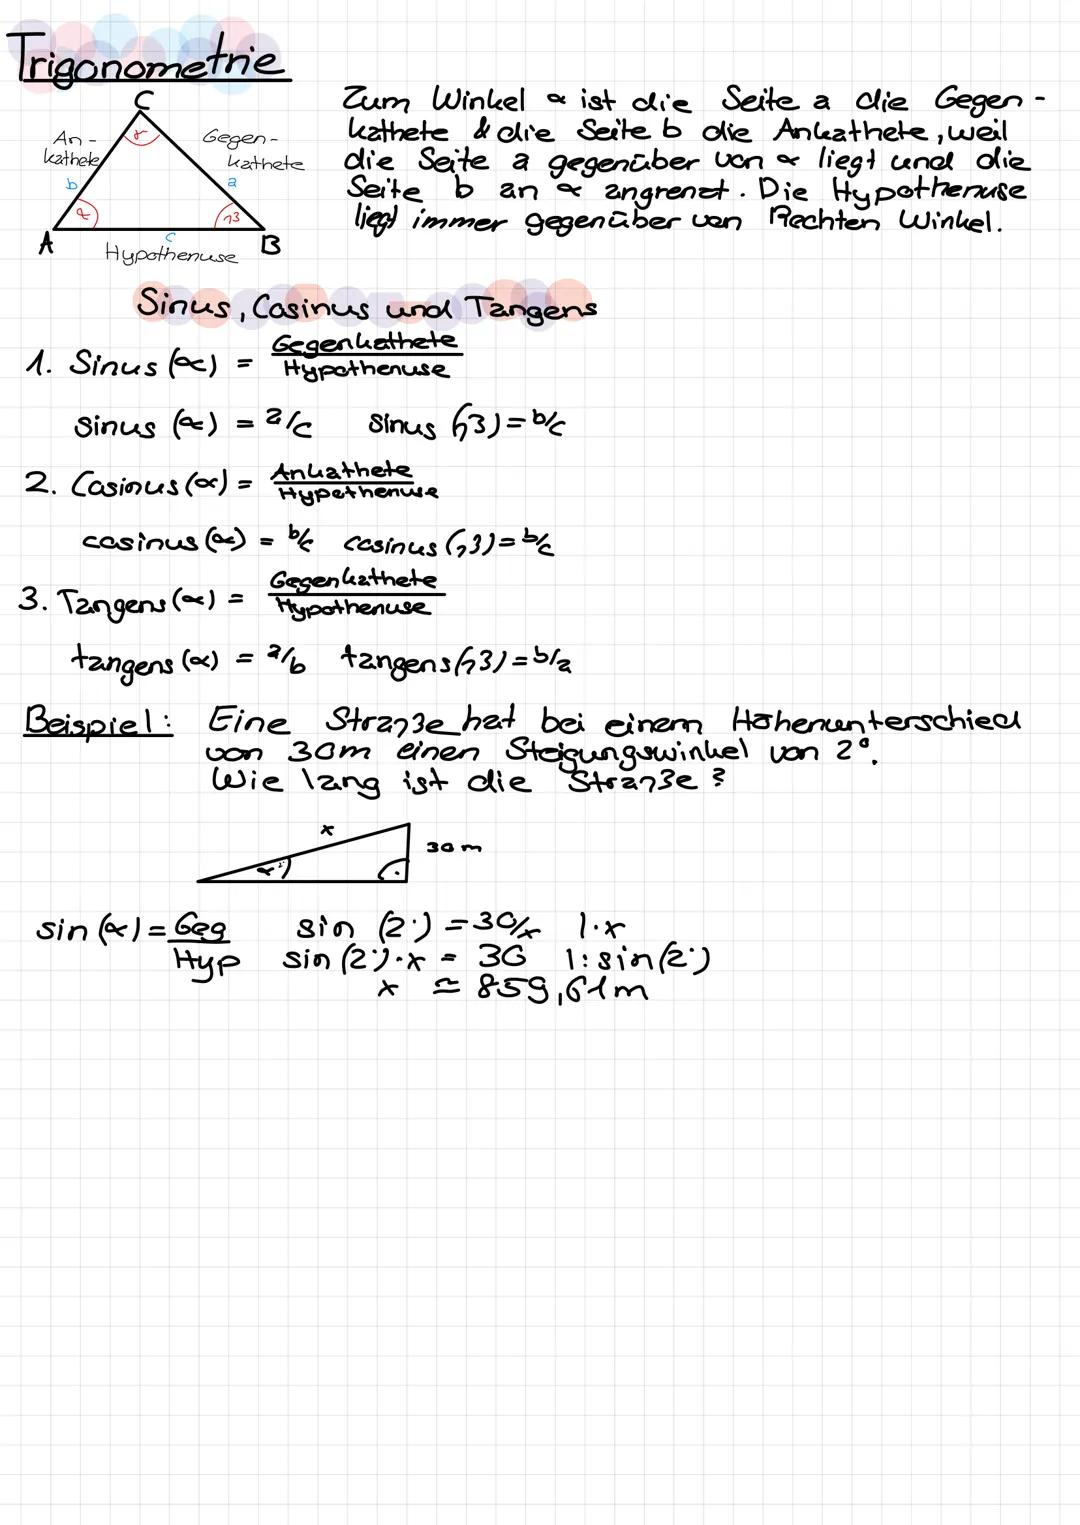 Trigonometrie
C
γ
An-
kathete
b
Gegen-
kathete
a
α
β
A
c
B
Hypothenuse
Zum Winkel α ist die Seite a die Gegen-
kathete & die Seite b die Ankathete, weil
die Seite a gegenüber von α liegt und die
Seite b an α angrenzt. Die Hypothenuse
liegt immer gegenüber von Rechten Winkel.
Sinus, Cosinus und Tangens
1. Sinus (α) = Gegenkathete / Hypothenuse
sinus (α) = a/c sinus (β) = b/c
2. Cosinus (α) = Ankathete / Hypothenuse
cosinus (α) = b/c cosinus (β) = b/c
3. Tangens (α) = Gegenkathete / Hypothenuse
tangens (α) = a/b tangens (β) = b/a
Beispiel: Eine Straße hat bei einem Höhenunterschied
von 30m einen Steigungswinkel von 2°.
Wie lang ist die Straße?
x
30 m
α 2°
sin (α) = Geg / Hyp
sin (2°) = 30/x |·x
sin (2°)·x = 30 |: sin (2°)
x ≃ 859,61m